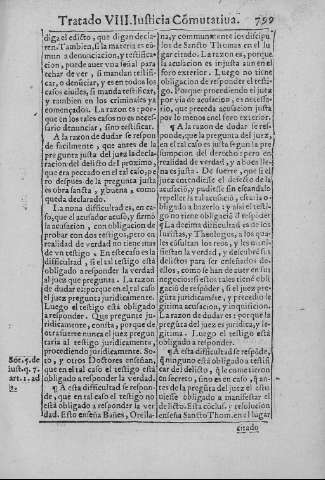 Tratado VIII. Iusticia Cōmutatiua. 799
diga el edicto, que digan decla-
ren. Tambien, si la materia es cō-
mun a denunciacion, y testifica-
cion, puede auer vna señal para
echar de ver, si mandan testifi-
car, o denunciar, y en todos los
casos ciuiles, si mandā testificar,
y tambien en los criminales ya
comenzados. La razon es: por-
que en los tales casos no es neces-
sario denunciar, sino testificar.
A la razon de dudar se respon
de facilmente, que antes de la
pregunta justa del juez la decla-
racion del delicto del proximo,
que era peccado en el tal caso, pe
ro despues de la pregunta justa
es obra sancta, y buena, como
queda declarado.
La nona difficultad es, en ca-
so, que el acusador acuso, y firmò
la acusacion, con obligacion de
probar con dos testigos, pero en
realidad de verdad no tiene mas
de vn testigo. En este caso es la
difficultad, si el tal testigo está
obligado a responder la verdad
al juez que pregunta. La razon
de dudar es: porque en el tal caso
el juez pregunta juridicamente.
Luego el testigo está obligado
a responder. Que pregunte ju-
ridicamente, consta, porque de
otra fuerte nunca el juez pregun
taria al testigo juridicamente,
procediendo juridicamente. So-
to, y otros Doctores enseñan,
que en el tal caso el testigo está
obligado a responder la verdad.
¶ A esta difficultad se respon-
de, que en el tal caso el testigo no
está obligado a responder la ver
dad. Esto enseña Bañes, Orella-
Sot. 5. de
iust. q. 7.
art. 1. ad
na, y communmente los discipu
los de Sancto Thomas en el lu
gar citado. La razon es, porque
la acusacion es injusta aun en el
foro exterior. Luego no tiene
obligacion de responder el testi-
go. Porque procediendo el juez
por via de acusacion, es necessa-
rio, que preceda acusacion justa
por lo menos en el foro exterior.
¶ A la razon de dudar se res-
ponde, que la pregunta del juez,
en el tal caso es justa segun la pre
sumpcion del derecho: pero en
realidad de verdad, y a buen lle-
na es justa. De suerte, que si el
juez entendiesse el defecto de la
acusacion, y pudiesse sin escandalo
repeller la tal acusacion, estaria o-
bligado a hazerlo: y asi el testi-
go no tiene obligacion de respōder
¶ La decima difficultad es de los
Iuristas, y Theologos, a los qua-
les consultan los reos, y les mani-
fiestan la verdad, y descubrē sus
delictos para ser enseñados de-
llos, como se han de auer en sus
negocios: si estos tales tienē obli
gaciō de respōder, si el juez pre-
gūta juridicamente, y precedio le
gitima acusacion, y inquisicion.
La razon de dudar es: porque la
pregūta del juez es juridica, y le-
gitima. Luego el testigo está
obligado a responder.
¶ A esta difficultad se respōde,
q̄ ninguno está obligado a testifi
car del delicto, q̄ le comunicaron
en secreto, sino es en caso, q̄ an-
tes de la pregūta del juez el casi
tuuiesse obligado a manifestar el
delicto. Esta cōclus. y resolucion
enseña Sancto Thom. en el lugar
citado